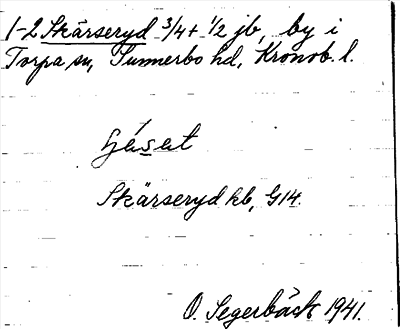 1-2 Skärseryd 3/4 + 1/2 jb, by i
Torpa sn, Sunnerbo hd, Kronob. l.
Skärseryd hb, G14.
O. Segerbäck 1941.